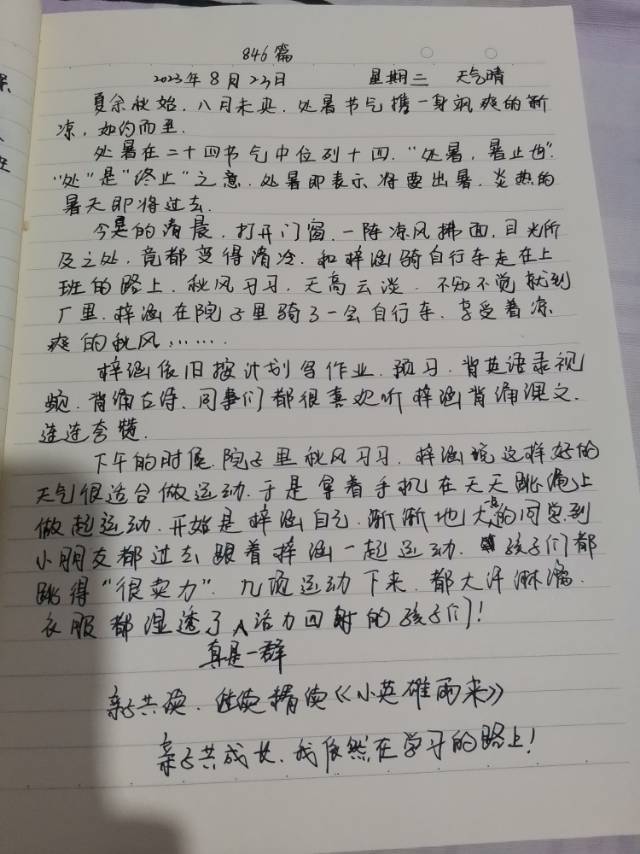 846篇
2023年8月23日 星期三 天气晴
夏余秋始，八月未央，处暑节气携一身飒爽的新
凉，如约而至.
处暑在二十四节气中位列十四.“处暑，暑止也”.
“处”是“终止”之意.处暑即表示将要出暑，炎热的
暑天即将过去.
今晨的清晨，打开门窗，一阵凉风拂面，目光所
及之处，竟都变得清冷.和梓涵骑自行车走在上
班的路上，秋风习习，天高云淡.不知不觉就到
厂里.梓涵在院子里骑了一会自行车.享受着凉
爽的秋风……
梓涵依旧按计划写作业.预习.背英语录视
频.背诵古诗.同事们都很喜欢听梓涵背诵课文.
连连夸赞.
下午的时候院子里秋风习习.梓涵说这样好的
天气很适合做运动.于是拿着手机在天天跳绳上
做起运动.开始是梓涵自己，渐渐地大的同学到
小朋友都过去跟着梓涵一起运动.孩子们都
跳得“很卖力”.九项运动下来.都大汗淋漓.
衣服都湿透了 活力四射的孩子们！
真是一群
亲子共读.继续精读《小英雄雨来》
亲子共成长.我依然在学习的路上！